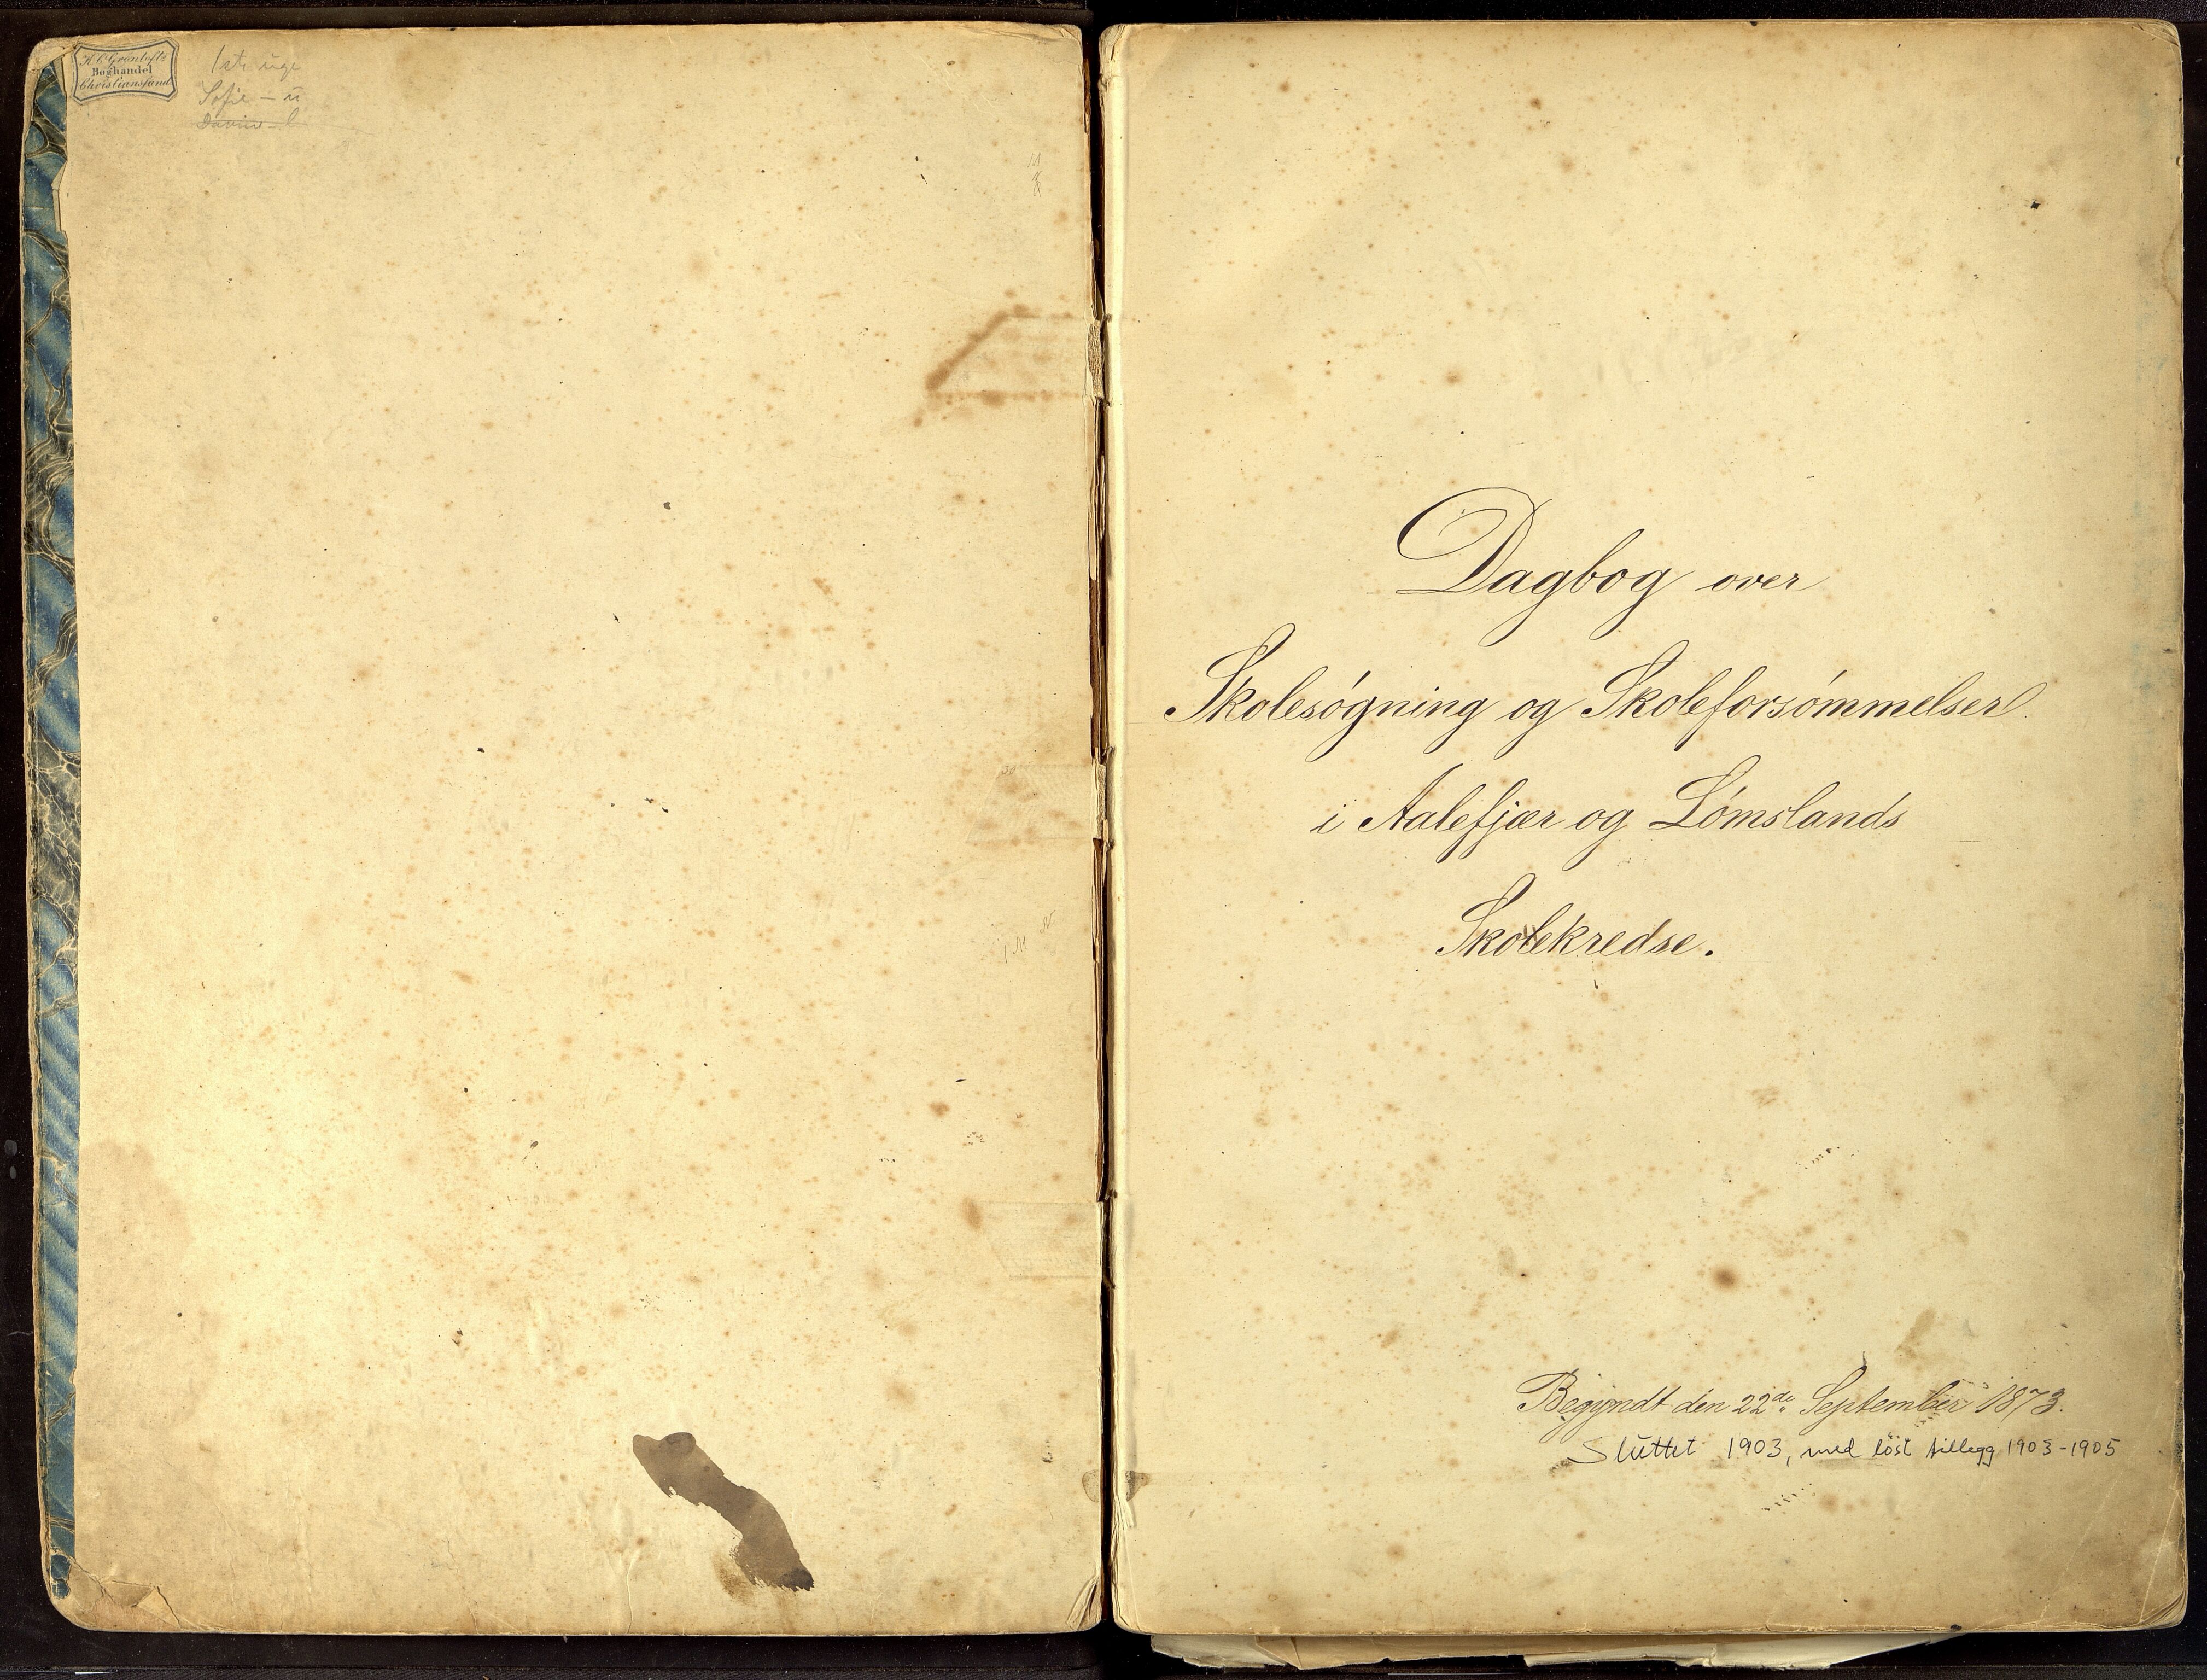 H. C. Grøntofts
Boghandel
Christianssand
1ste uge
Sofie - u
Dagbog over
Skolesøgning og Skoleforsømmelser
i Aalefjær og Lómslands
Skolekredse.
Begyndt den 22de September 1873.
Sluttet 1903, med löst tillegg 1903-1905